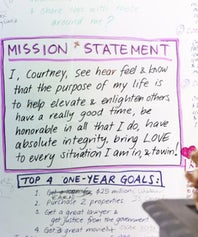 & share lots with those
around me?
MISSION * STATEMENT
I, Courtney, see hear feel & know
that the purpose of my life is
to help elevate & enlighten others,
have a really good time, be
honorable in all that I do, have
absolute integrity, bring LOVE
to every situation I am in, & to win!
TOP 4 ONE-YEAR GOALS:
1. Get $25 million
2. Purchase 2 properties
3. Get a great lawyer &
get justice from the government
4. Get 3 great